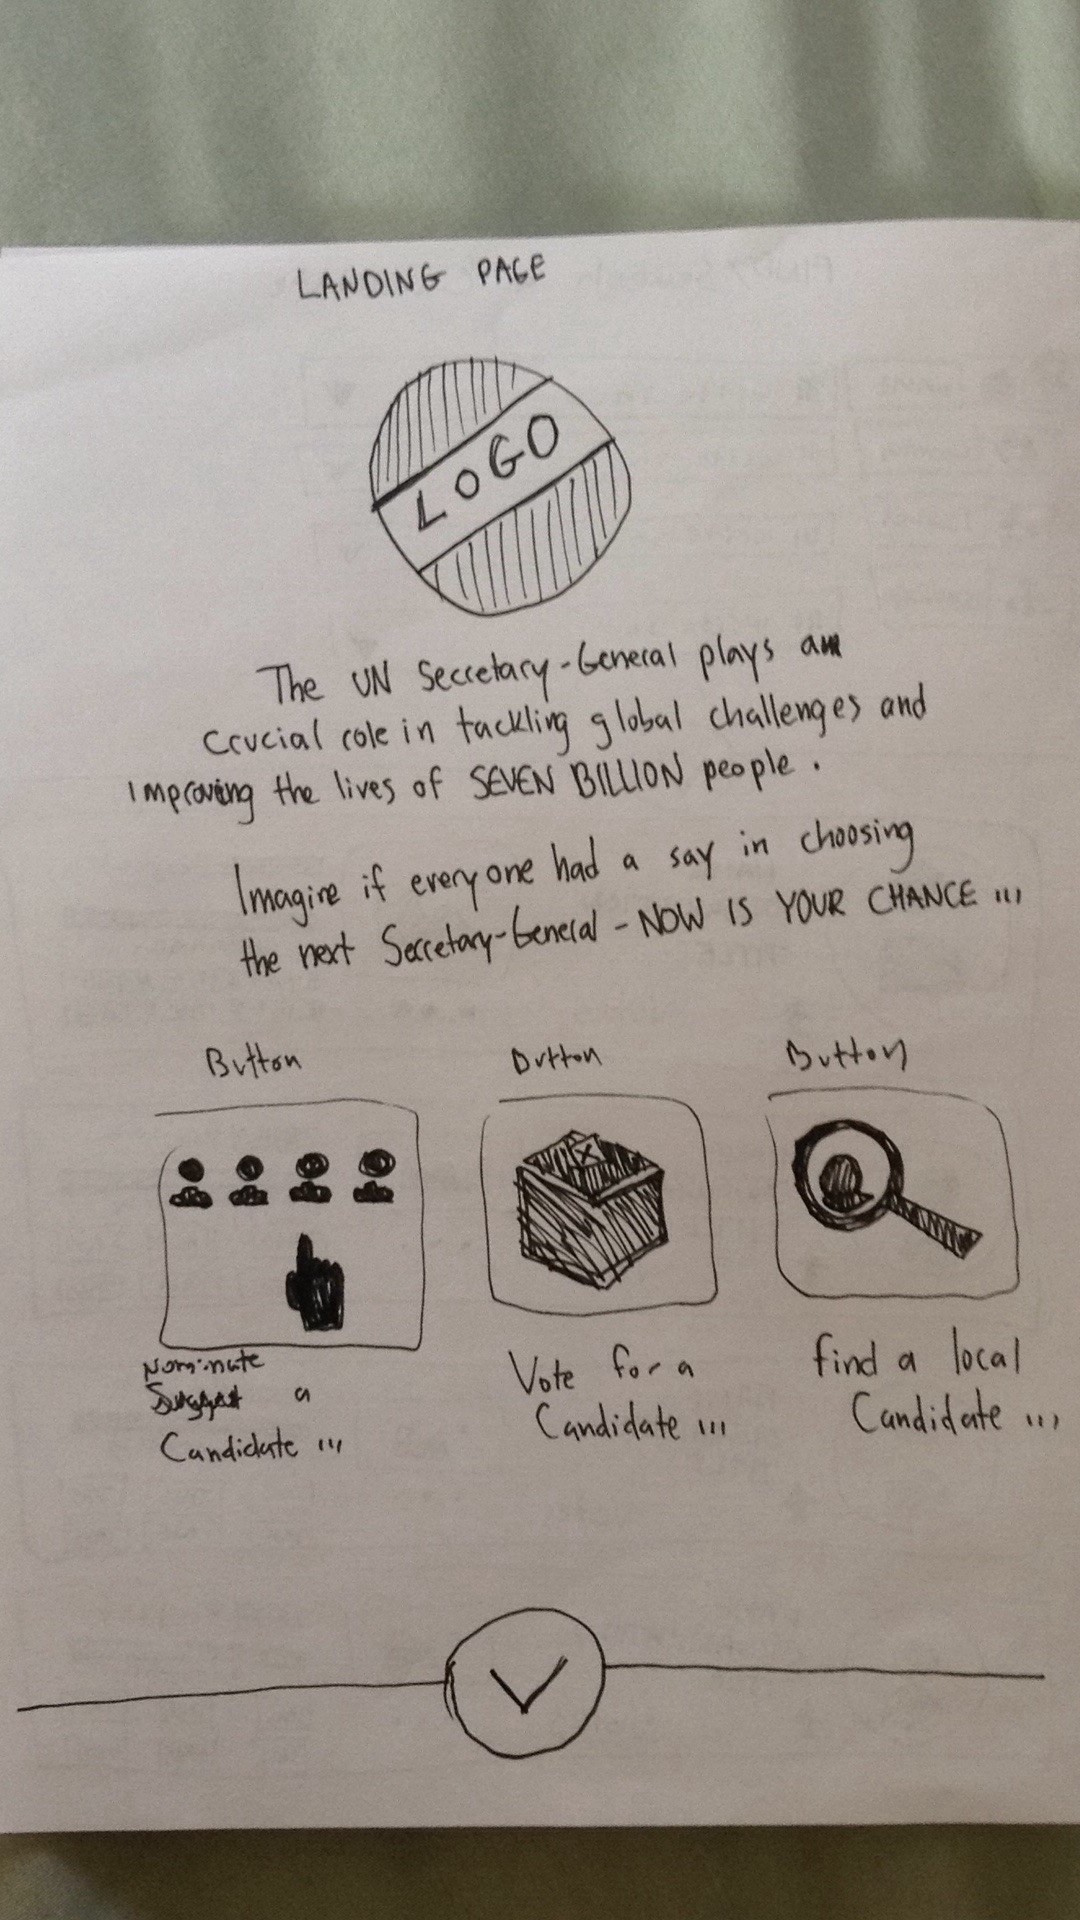 LANDING PAGE
LOGO
The UN Secretary-General plays a
crucial role in tackling global challenges and
improving the lives of SEVEN BILLION people.
Imagine if everyone had a say in choosing
the next Secretary-General - NOW IS YOUR CHANCE ...
Button
Button
Button
Nominate
Suggest a
Candidate ...
Vote for a
Candidate ...
find a local
Candidate ...